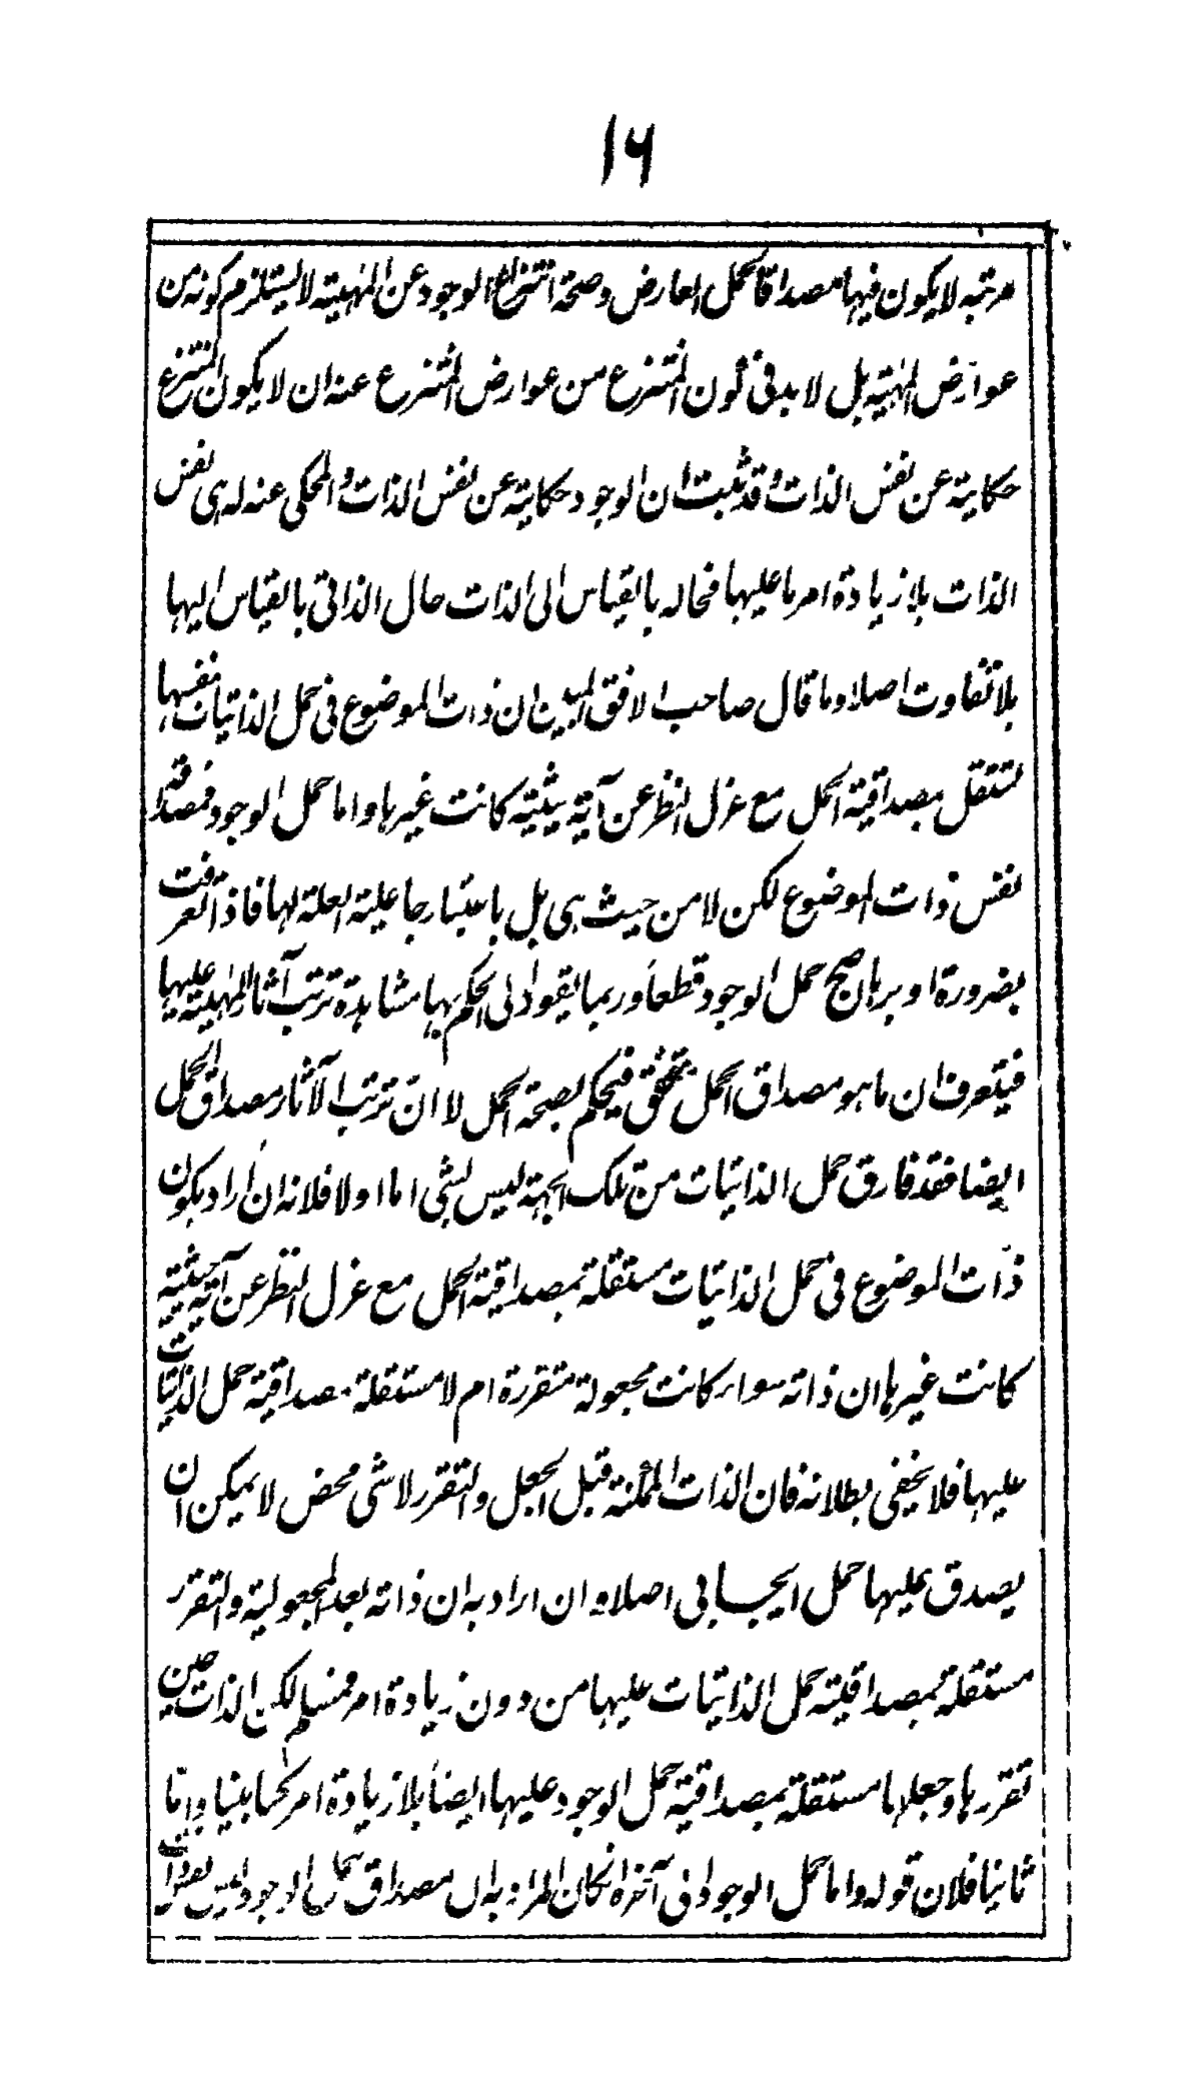 ١٦
مرتبه لا يكون فيها مصداقا لحمل العارض وصحة انتزاع الوجود عن المهية لا يستلزم كونه من
عوارض المهية بل لا بد فى كون المنتزع من عوارض المنتزع عنه ان لا يكون المنتزع
حكاية عن نفس الذات وقد ثبت ان الوجود حكاية عن نفس الذات والمحكى عنه له هى نفس
الذات بلا زيادة امر ما عليها فحاله بالقياس الى الذات حال الذاتى بالقياس اليها
بلا تفاوت اصلا وما قال صاحب الافق المبين ان ذات الموضوع فى حمل الذاتيات نفسها
تستقل بمصداقية الحمل مع عزل النظر عن آية حيثية كانت غيرها واما حمل الوجود فمصداقه
نفس ذات الموضوع لكن لا من حيث هى بل باعتبار جاعلية العلة لها فاذا تعرفت
بضرورة او برهان صح حمل الوجود قطعاً وربما يقود الى الحكم بها مشاهدة ترتب آثار المهية عليها
فيتعرف ان ما هو مصداق الحمل تحقق فيحكم بصحة الحمل لا ان ترتب الآثار مصداق الحمل
ايضا فقد فارق حمل الذاتيات من تلك الجهة ليس بشئ اما اولا فلانه ان اراد بكون
ذات الموضوع فى حمل الذاتيات مستقلة بمصداقية الحمل مع عزل النظر عن آية حيثية
كانت غيرها ان ذاته سواء كانت مجعولة متقررة ام لا مستقلة بمصداقية حمل الذاتيات
عليها فلا يخفى بطلانه فان الذات الممكنة قبل الجعل والتقرر لا شئ محض لا يمكن ان
يصدق عليها حمل ايجابى اصلا وان اراد به ان ذاته بعد المجعولية والتقرر
مستقلة بمصداقية حمل الذاتيات عليها من دون زيادة امر فمسلم لكن الذات حين
تقررها وجعلها مستقلة بمصداقية حمل الوجود عليها ايضاً بلا زيادة امر كما بينا واما
ثانيا فلان قوله واما حمل الوجود الى آخره ان كان المراد به ان مصداق حمل الوجود ليس نفس